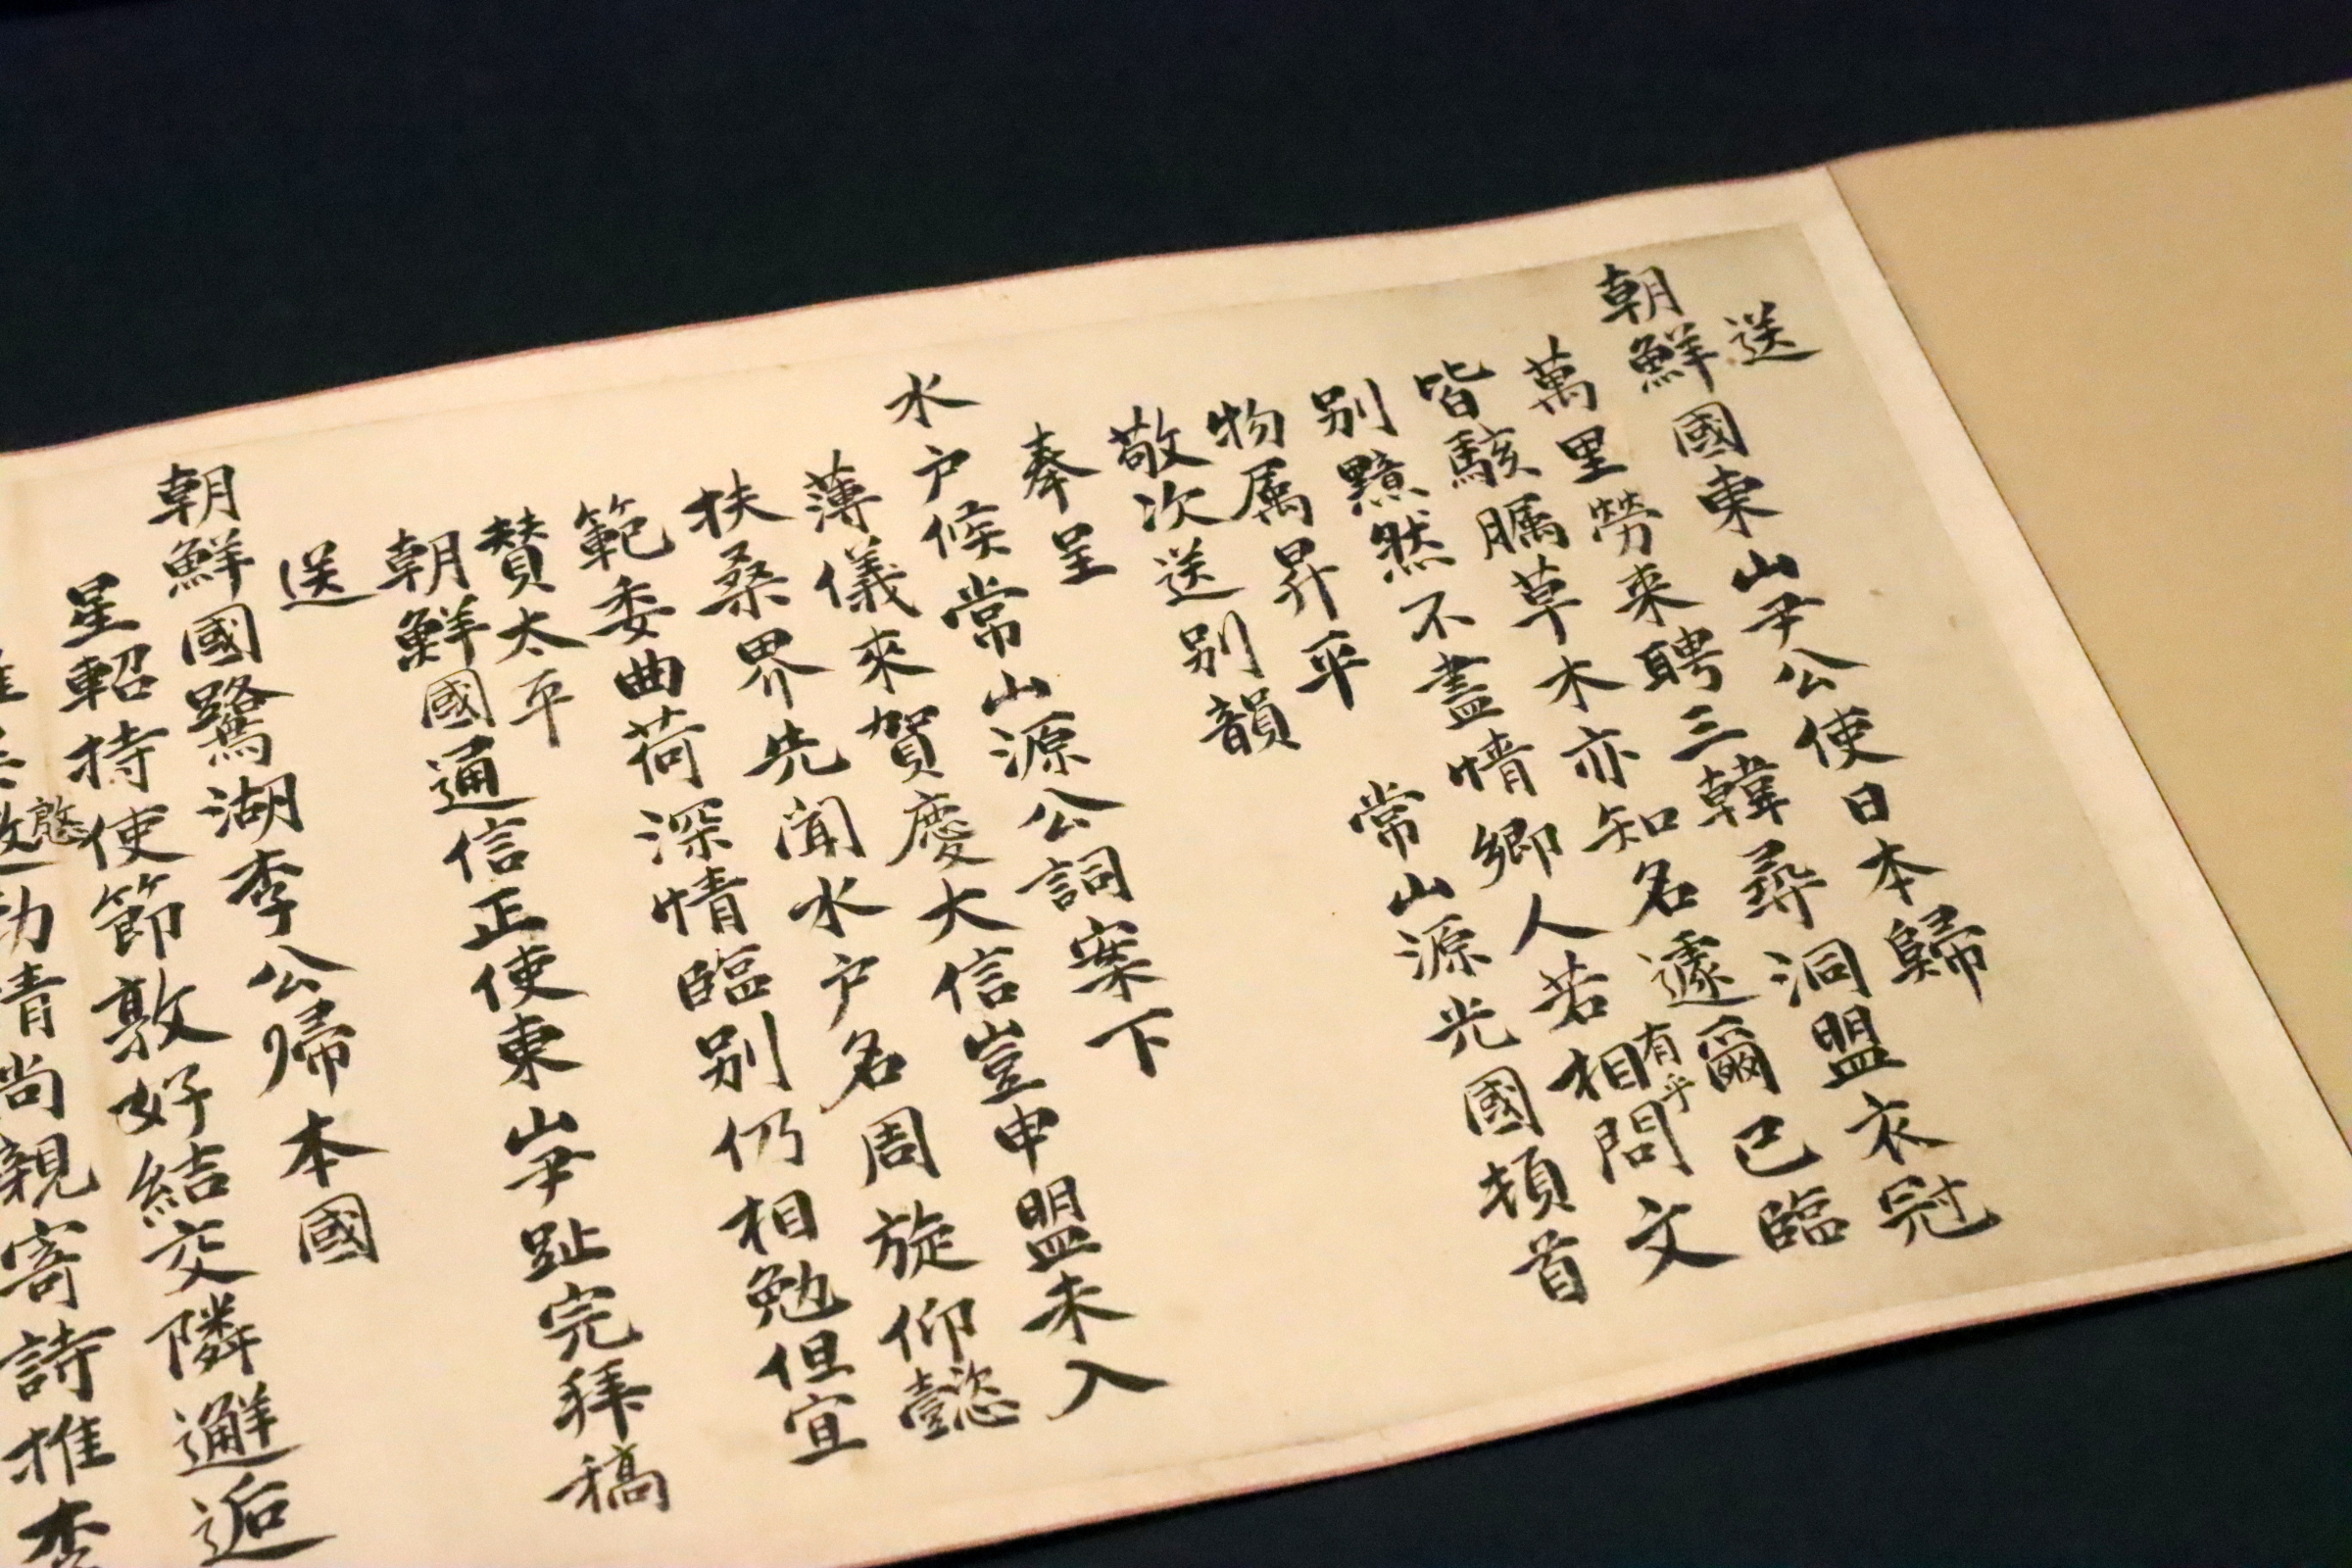 送
朝鮮國東山尹公使日本歸
萬里勞来聘三韓尋洞盟衣冠
皆駭矚草木亦知名遽爾已臨
別黯然不盡情鄉人若相問有乎文
物属昇平
常山源光國頓首
敬次送別韻
奉呈
水户候常山源公詞案下
薄儀來賀慶大信豈申盟未入
扶桑界先聞水户名周旋仰懿
範委曲荷深情臨別仍相勉但宜
賛太平
朝鮮國通信正使東山尹趾完拜稿
送
朝鮮國鷺湖李公帰本國
星軺持使節敦好結交隣邂逅
情尚親寄詩推李